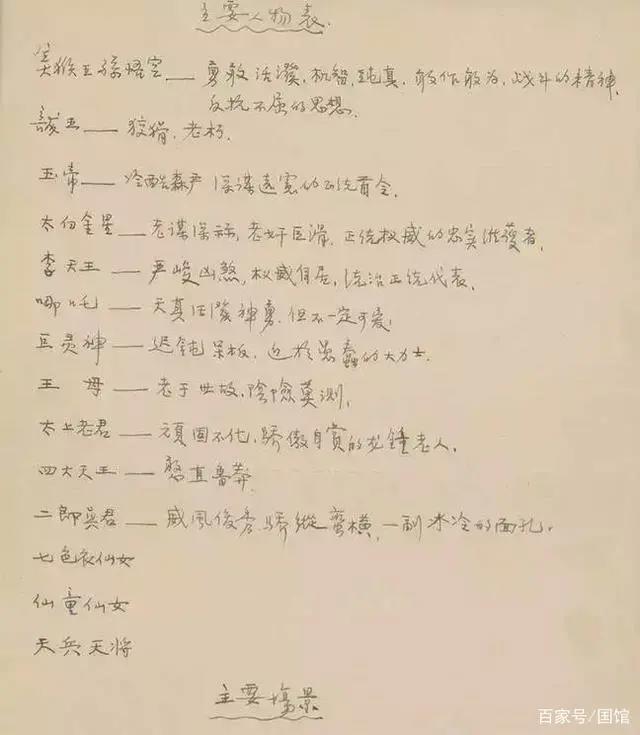 主要人物表.
美猴王孫悟空——勇敢活潑.机智.純真.敢作敢为.战斗的精神.
反抗不屈的思想.
龍王——狡猾.老朽.
玉帝——冷酷森严 深谋遠慮的正统首令.
太白金星——老謀深祘,老奸巨滑.正统权威的忠实维護者.
李天王——严峻凶煞,权威自居,统治正统代表.
哪吒——天真活潑神勇.但不一定可爱.
巨灵神——迟鈍呆板,近於愚蠢的大力士.
王母——老于世故,陰險莫測.
太上老君——頑固不化,驕傲自賞的龙鍾老人.
四大天王——憨直魯莽.
二郎真君——威風俊秀.驕縱蛮横,一副冰冷的面孔.
七色衣仙女
仙童仙女
天兵天将
主要場景
百家号/国馆